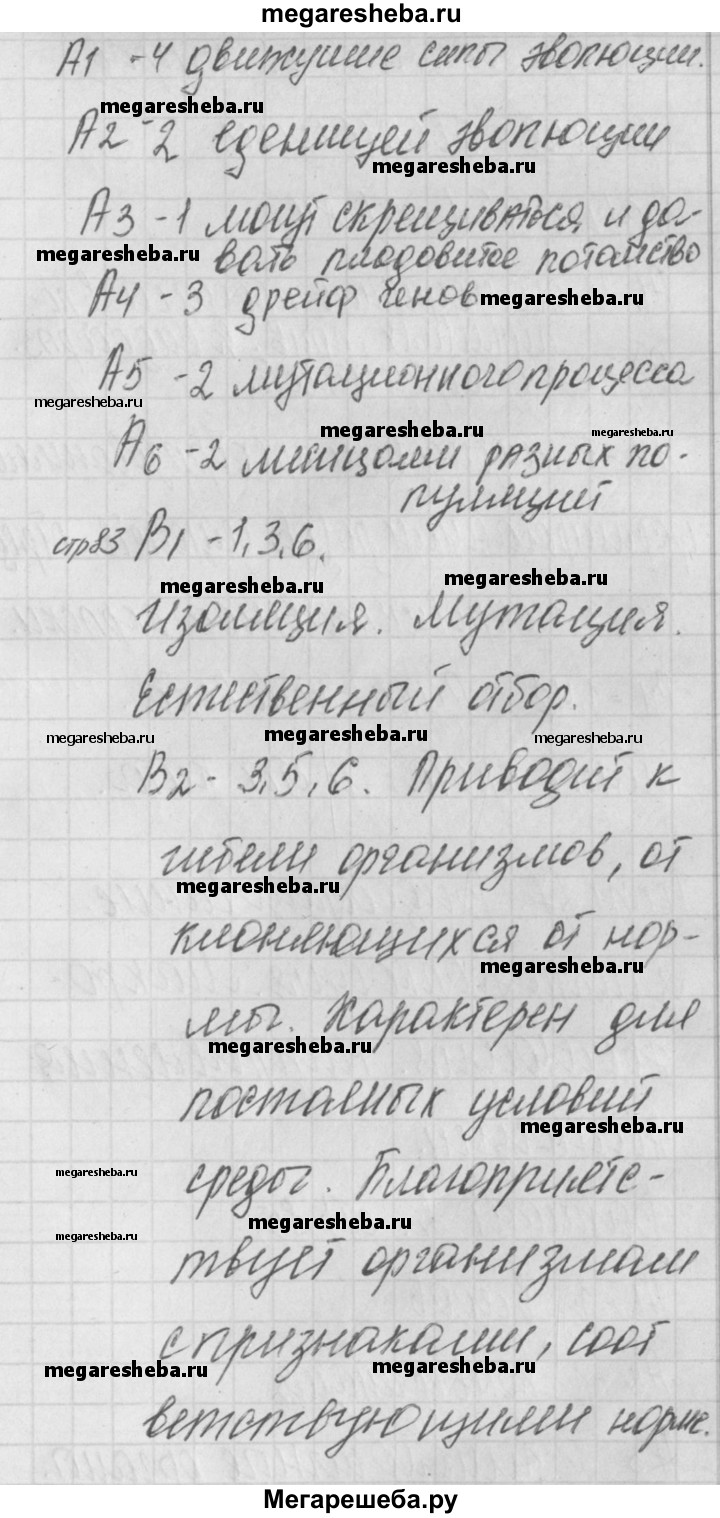 megaresheba.ru
А1 -4 движущие силы эволюции.
megaresheba.ru
А2 -2 еденицей эволюции
megaresheba.ru
А3 -1 могут скрещиваться и да-
megaresheba.ru
вать плодовитое потомство
А4 - 3 дрейф генов megaresheba.ru
А5 -2 мутационного процесса
megaresheba.ru
megaresheba.ru megaresheba.ru
А6 -2 миницами разных по-
пуляций
стр83 В1 -1,3,6.
megaresheba.ru megaresheba.ru
Изоляция. Мутация.
Естественный отбор.
megaresheba.ru megaresheba.ru megaresheba.ru
В2 - 3,5,6. Приводит к
гибели организмов, от
megaresheba.ru
клоняющихся от нор-
megaresheba.ru
мы. Характерен для
megaresheba.ru
постояных условий
megaresheba.ru
megaresheba.ru
среды. Благоприятс-
megaresheba.ru
megaresheba.ru
твует организмам
с признаками, соот
megaresheba.ru megaresheba.ru
ветствующими норме.
Мегарешеба.ру